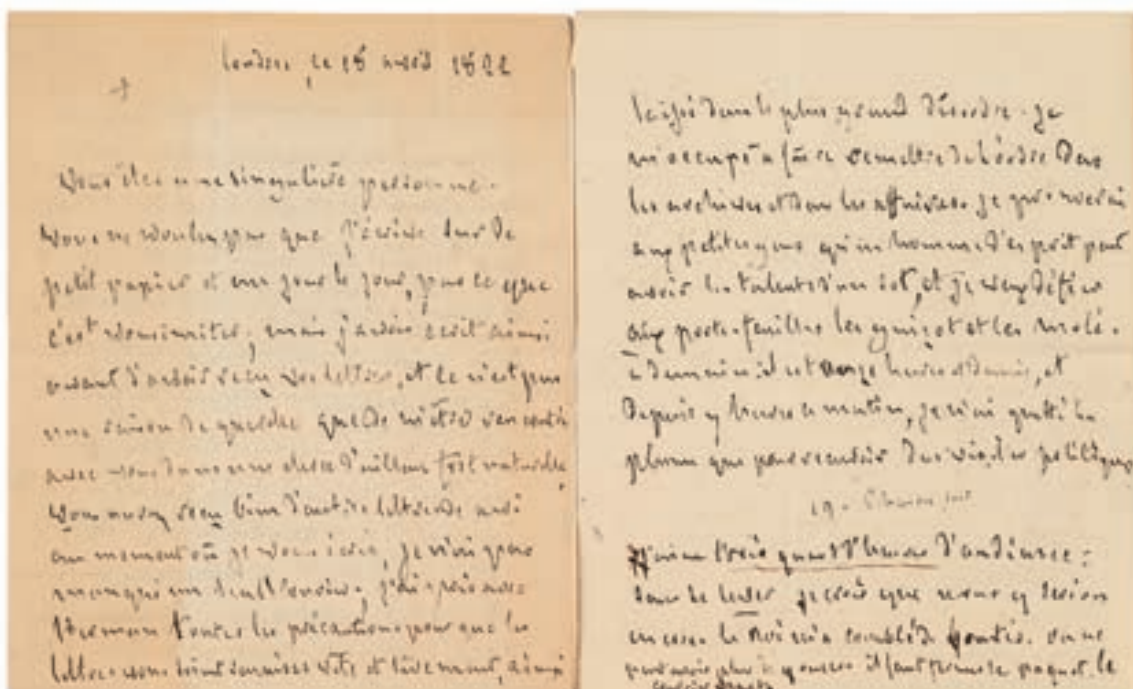 Londres, ce 18 avril 1822
Vous êtes une singulière personne.
Vous ne voulez pas que j'écrive sur de
petit papier et un jour le jour, parce que
c'est vous imiter; mais j'avois écrit ainsi
avant d'avoir reçu vos lettres, et ce n'est pas
une raison de querelle que de m'être rencontré
avec vous dans une chose d'ailleurs fort naturelle.
Vous avez reçu bien d'autres lettres de moi
au moment où je vous écris, je n'ai pas
manqué un seul courier, j'ai pris avec
toutes les précautions pour que les
lettres vous soient remises vite et sûrement, ainsi
laissé dans le plus grand désordre. Je
m'occupe à faire remettre de l'ordre dans
les archives et dans les affaires. Je prouverai
aux petites gens qu'un homme d'esprit peut
avoir les talents d'un sot, et je veux défier
aux porte-feuilles les Guizot et les Molé.
à demain il est onze heures et demie, et
depuis 7 heures ce matin, je n'ai quitté la
plume que pour recevoir des visites politiques
19.
J'ai eu trois quart d'heures d'audience:
sans le lever je crois que nous y serions
encore. Le Roi m'a comblé de bontés. on ne
peut avoir plus de il faut fermer le paquet. le